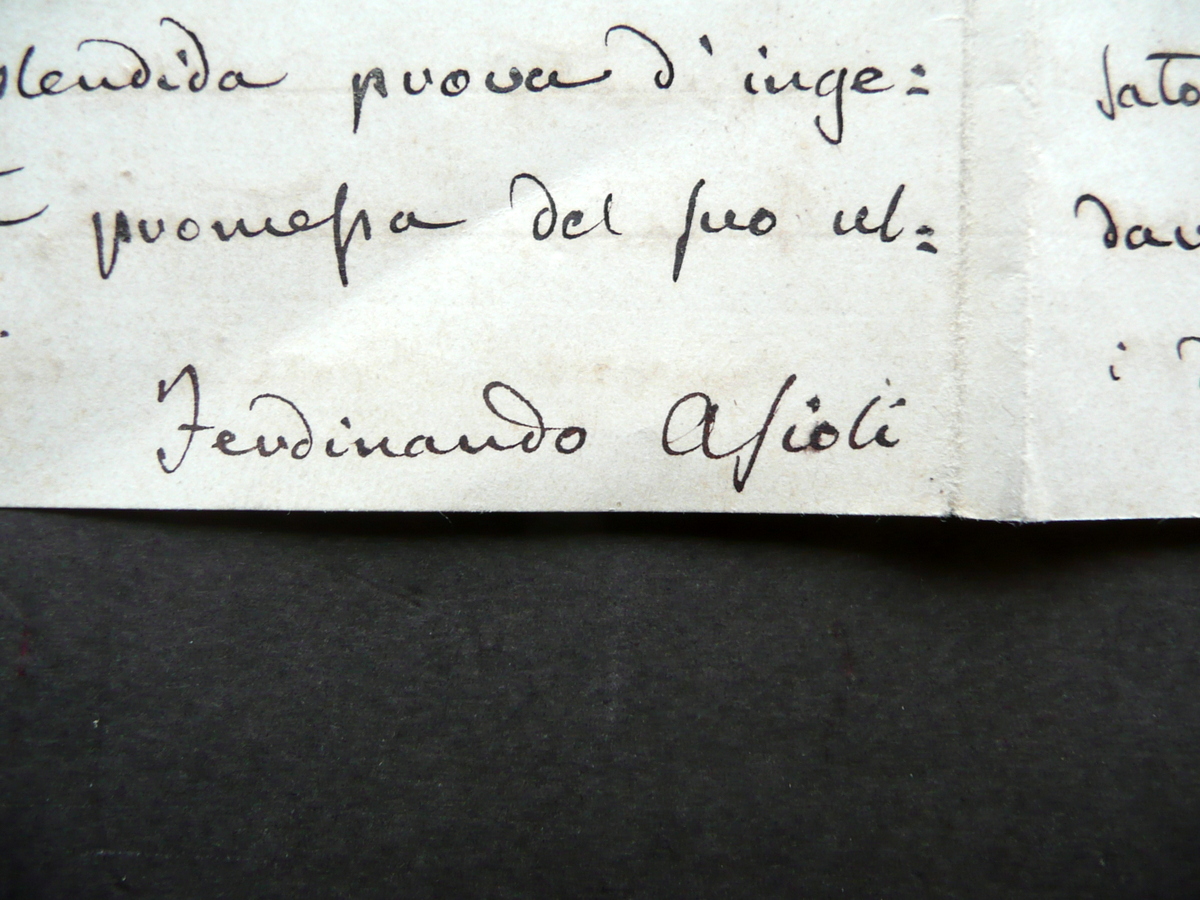 splendida prova d'inge:
promessa del suo ul:
Ferdinando Asioli
sato
dav
i